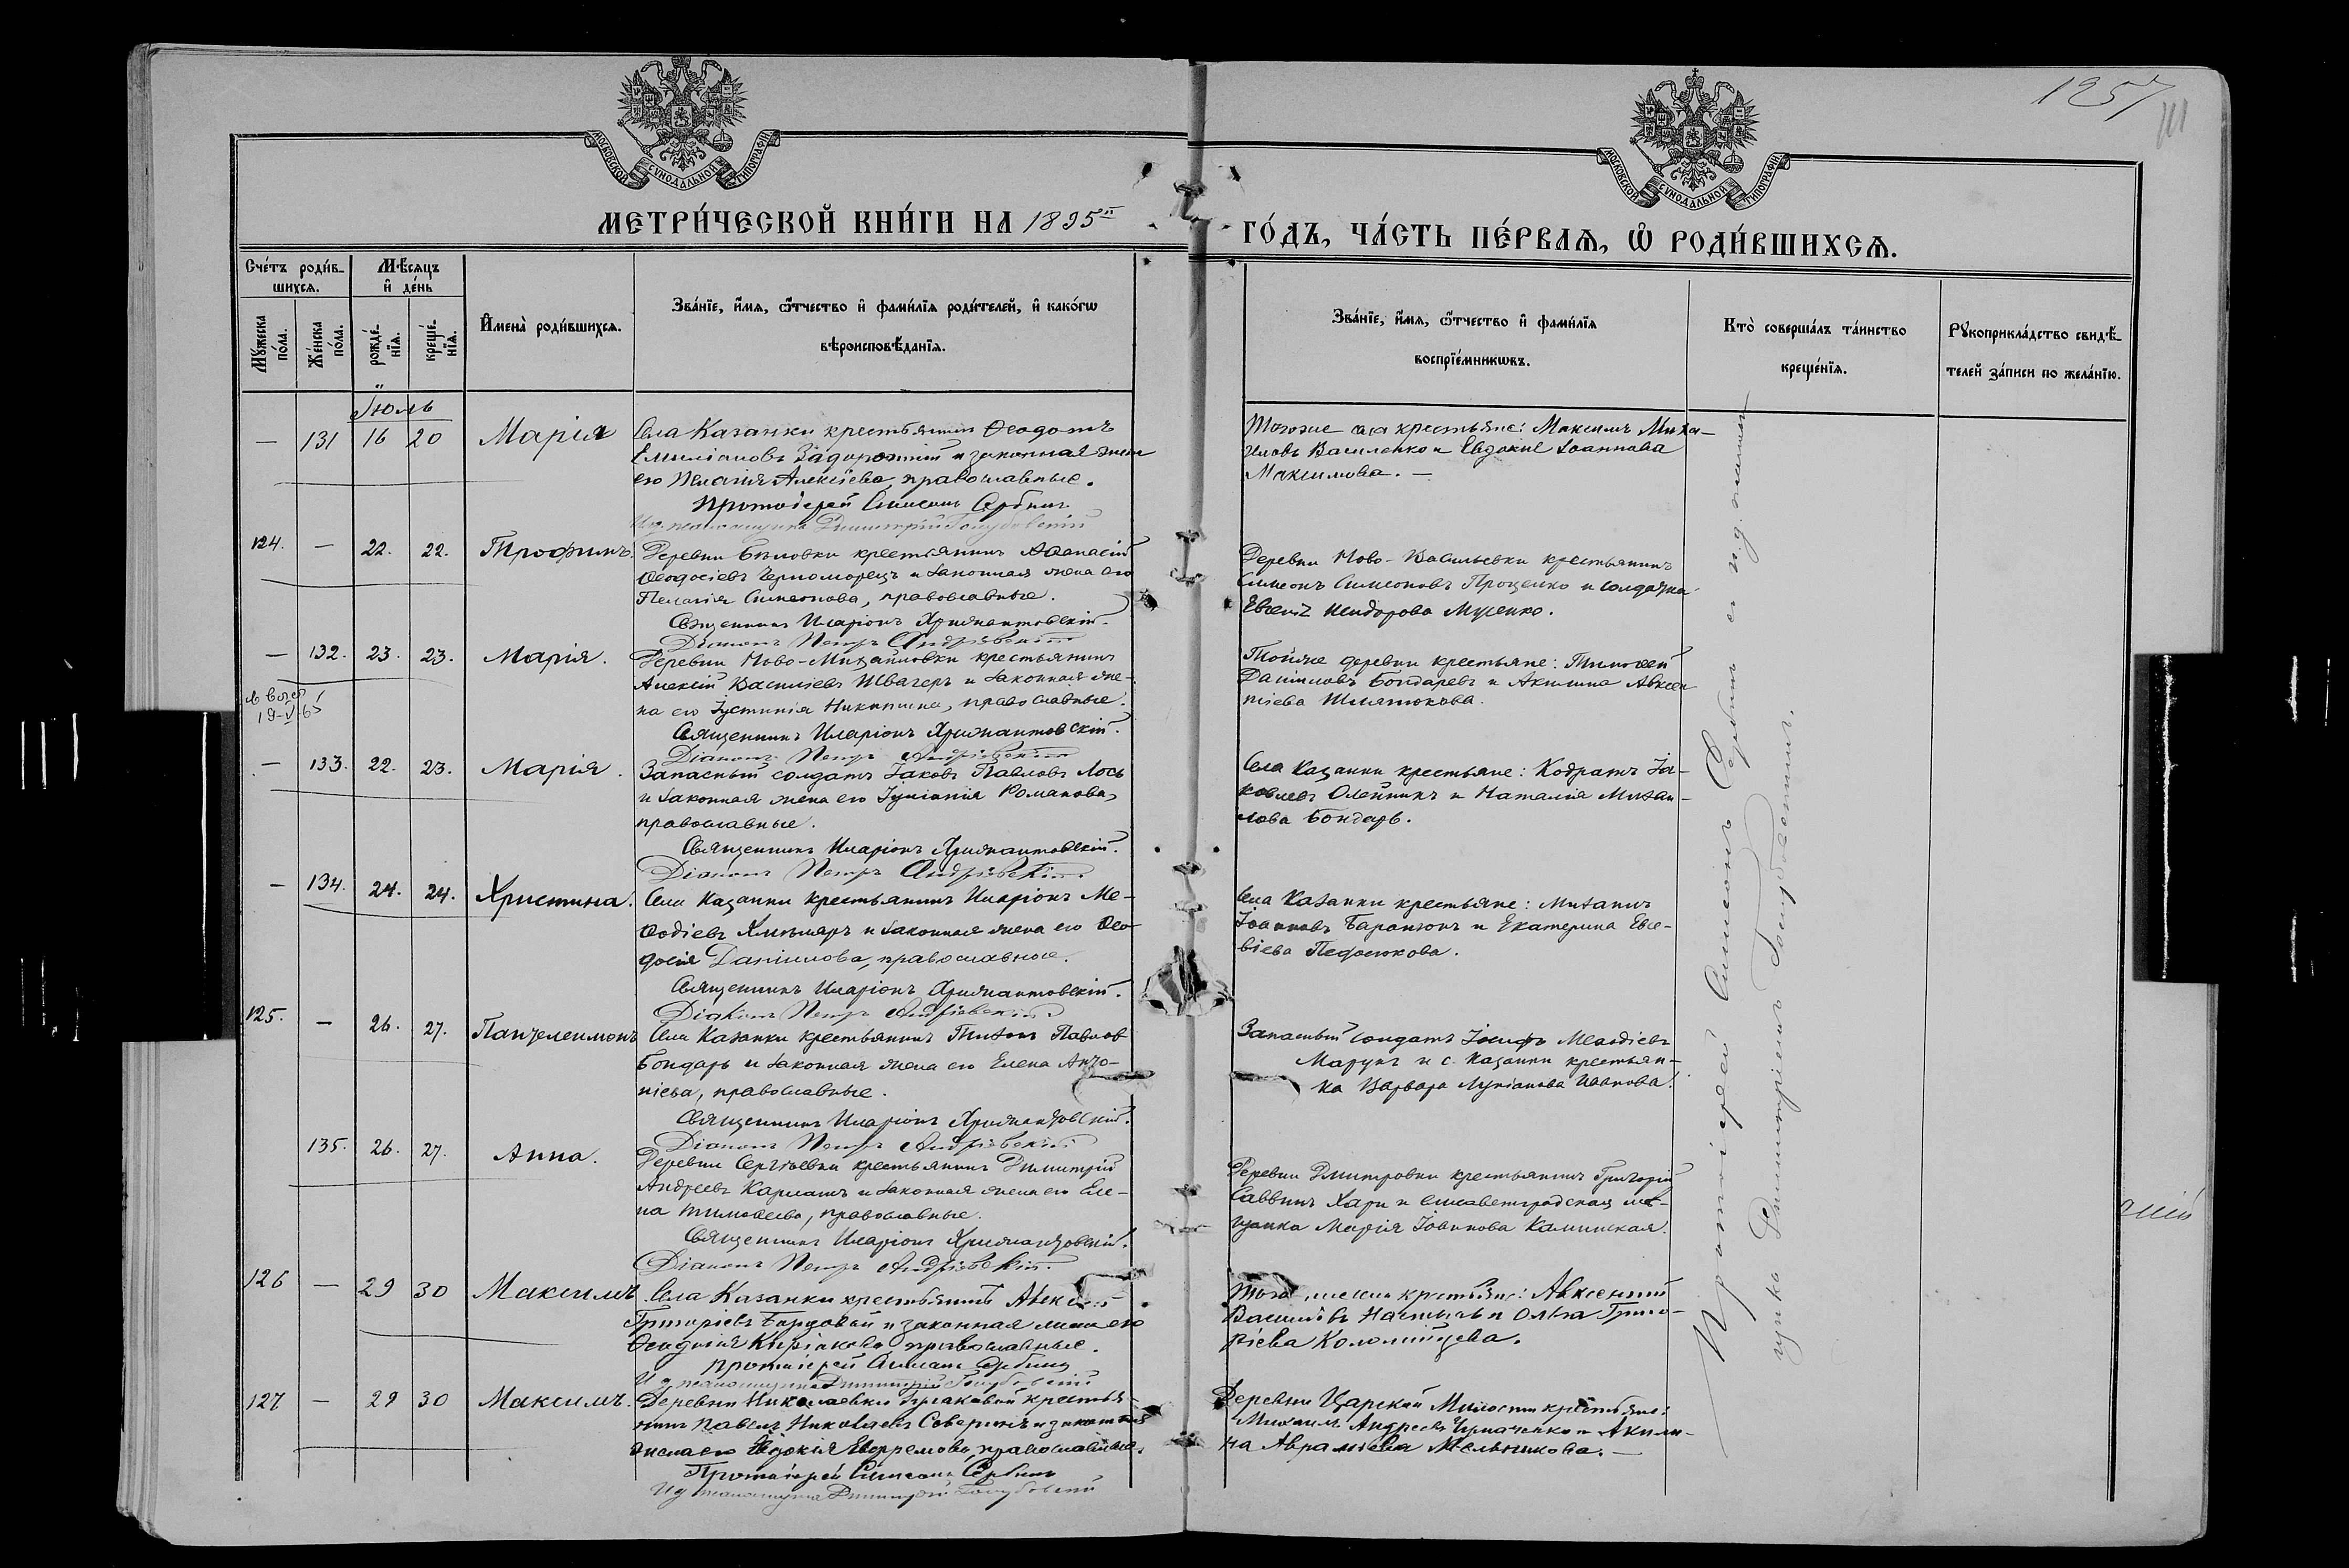 125
МОСКОВСКОЙ СѴНОДАЛЬНОЙ ТИПОГРАФІИ
МОСКОВСКОЙ СѴНОДАЛЬНОЙ ТИПОГРАФІИ
МЕТРИ́ЧЕСКОЙ КНИ́ГИ НА 1895й
ГО́ДЪ, ЧА́СТЬ ПЕ́РВАѦ, Ѡ҆ РОДИ́ВШИХСѦ.
Сче́тъ роди́в-
шихсѧ.
Мѣ́сѧцъ
и҆ де́нь
Мꙋ́жеска по́ла.
Же́нска по́ла.
рожде́-нїѧ.
креще́-нїѧ.
И҆мена̀ роди́вшихсѧ.
Зва́нїе, и҆́мѧ, ѻ҆́тчество и҆ фами́лїѧ роди́телей, и҆ како́гѡ
вѣроисповѣ́данїѧ.
Зва́нїе, и҆́мѧ, ѻ҆́тчество и҆ фами́лїѧ
воспрїе́мникѡвъ.
Кто̀ соверша́лъ та́инство
креще́нїѧ.
Рꙋкоприкла́дство свидѣ́-
телей за́писи по жела́нїю.
Іюль
— 131 16 20 Марія Села Казанки крестьянинъ Ѳеодотъ
Емиліановъ Задорожній и законная жена
его Пелагія Алексіева, православные.
Протоіерей Симеонъ Сербинъ
И.д. псаломщика Димитрій Голубовскій
Тогоже села крестьяне: Максимъ Миха-
иловъ Василенко и Евдокія Іоаннова
Максимова. —
124. — 22. 22. Трофимъ. Деревни Бѣловки крестьянинъ Аѳанасій
Ѳеодосіевъ Черноморецъ и законная жена его
Пелагія Симеонова, православные.
Священникъ Иларіонъ Хрижантовскій.
Діаконъ Петръ Андріевскій
Деревни Ново-Васильевки крестьянинъ
Симеонъ Симеоновъ Проценко и солдатка
Евгенія Исидорова Мусенко.
— 132. 23. 23. Марія. Деревни Ново-Михайловки крестьянинъ
Алексій Василіевъ Швагеръ и законная же-
на его Іустинія Никитина, православные.
Священникъ Иларіонъ Хрижантовскій.
Діаконъ Петръ Андріевскій
Тойже деревни крестьяне: Тимоѳей
Даніиловъ Бондаревъ и Акилина Авксен-
тіева Шлятюкова.
— 133. 22. 23. Марія. Запасный солдатъ Іаковъ Павловъ Лось
и законная жена его Іуліанія Романова,
православные.
Священникъ Иларіонъ Хрижантовскій.
Діаконъ Петръ Андріевскій
Села Казанки крестьяне: Кодратъ Іа-
ковлевъ Олейникъ и Наталія Михаи-
лова Бондарь.
— 134. 24. 24. Христина. Села Казанки крестьянинъ Иларіонъ Ме-
ѳодіевъ Хлѣмаръ и законная жена его Ѳео-
досія Даніилова, православные.
Священникъ Иларіонъ Хрижантовскій.
Діаконъ Петръ Андріевскій
Села Казанки крестьяне: Михаилъ
Іоанновъ Баранюкъ и Екатерина Евсе-
віева Педосюкова.
125. — 26. 27. Пантелеимонъ Села Казанки крестьянинъ Тихонъ Павловъ
Бондарь и законная жена его Елена Анто-
ніева, православные.
Священникъ Иларіонъ Хрижантовскій.
Діаконъ Петръ Андріевскій
Запасный солдатъ Іосифъ Меѳодіевъ
Марукъ и с. Казанки крестьян-
ка Варвара Лукіанова Иванова.
135. 26. 27. Анна. Деревни Сергіевки крестьянинъ Димитрій
Андреевъ Карлашъ и законная жена его Еле-
на Тимоѳеева, православные.
Священникъ Иларіонъ Хрижантовскій.
Діаконъ Петръ Андріевскій.
Деревни Дмитровки крестьянинъ Григорій
Саввинъ Хари и елисаветградская мѣ-
щанка Марія Іоаннова Калинская.
126 — 29 30 Максимъ. Села Казанки крестьянинъ Алексій
Григоріевъ Бардовый и законная жена его
Ѳеодосія Киріакова православные.
Протоіерей Симеонъ Сербинъ
И.д. псаломщика Димитрій Голубовскій
Того же села крестьяне: Авксентій
Василіевъ Настычъ и Ольга Григо-
ріева Коломійцева.
127 — 29 30 Максимъ. Деревни Николаевки Булаковой крестья-
нинъ Павелъ Николаевъ Северинъ и законная
жена его Евдокія Ефремова, православные.
Протоіерей Симеонъ Сербинъ
И.д. псаломщика Димитрій Голубовскій
Деревни Царской Милости крестьяне:
Михаилъ Андреевъ Чумаченко и Акили-
на Авраміева Мельникова. —
Протоіерей Симеонъ Сербинъ съ и.д. псалом-
щика Димитріемъ Голубовскимъ.